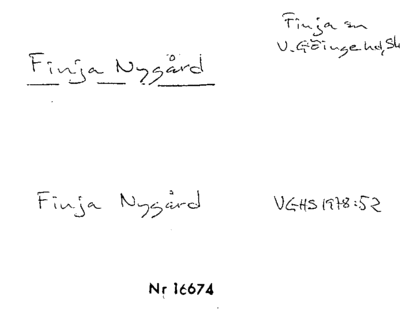 Finja sn
V. Göinge hd, Sk
Finja Nygård
Finja Nygård
VGHS 1978:52
Nr 16674